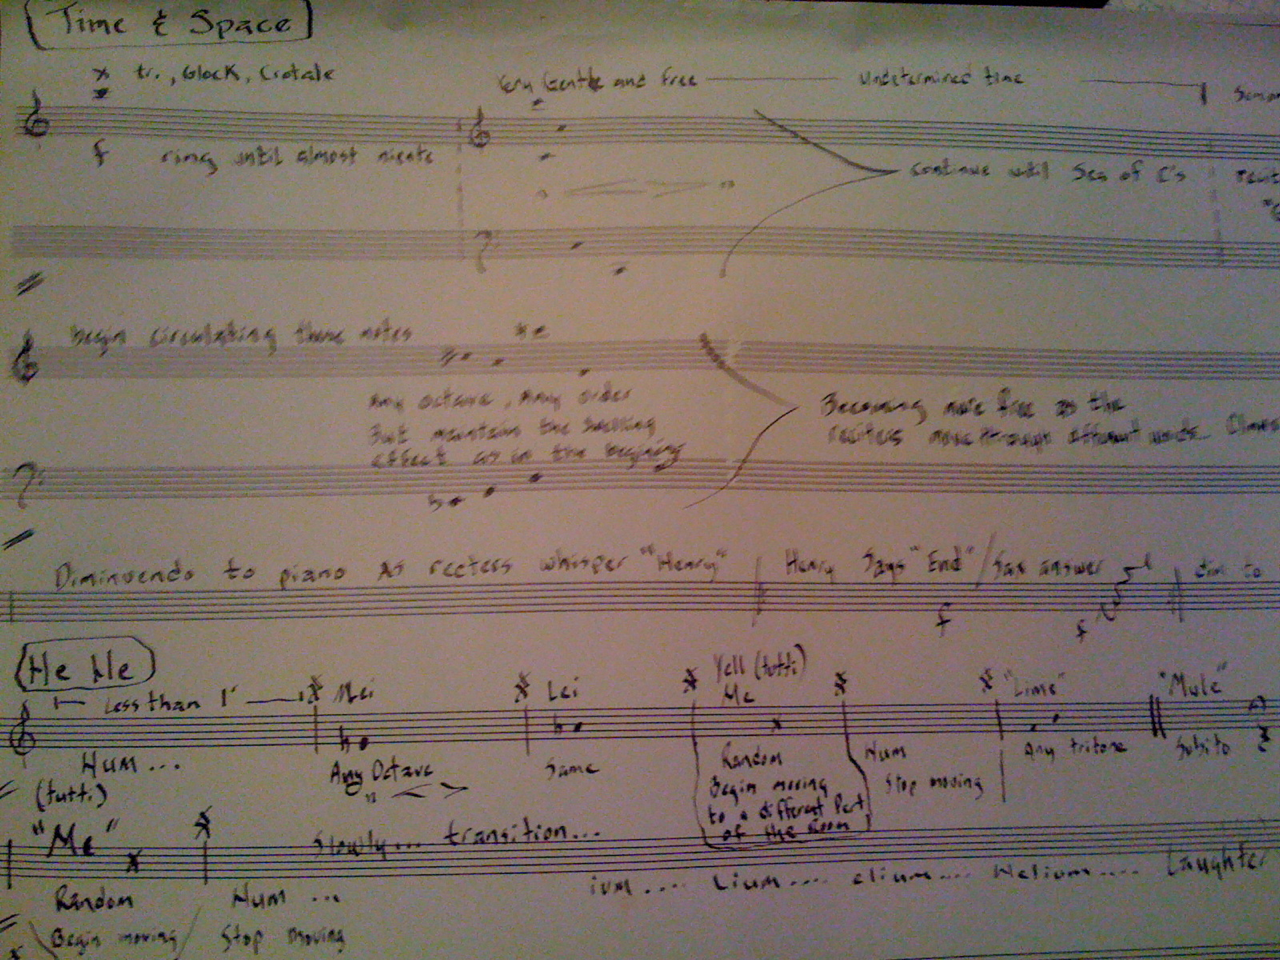 Time & Space
tr., Glock, Crotale
Very Gentle and free
Undetermined time
f ring until almost niente
continue until Sea of C's
begin circulating these notes
Any octave, Any order
But maintain the swelling
effect as in the begining
Becoming more free as the
reciters move through different words...
Diminuendo to piano As recters whisper "Henry"
Henry Says "End" / Sax answer
dim to
f
f
He He
Less than 1'
Mei
Lei
Yell (tutti)
Me
"Lime"
"Mule"
Hum ...
Any Octave
n
Same
Random
Begin moving
to a different Part
of the Room
Hum
Stop moving
Any tritone
Subito
(tutti)
"Me"
Slowly... transition...
Random
Hum ...
ium.... Lium.... elium.... Helium.... Laughter
Begin moving
Stop moving